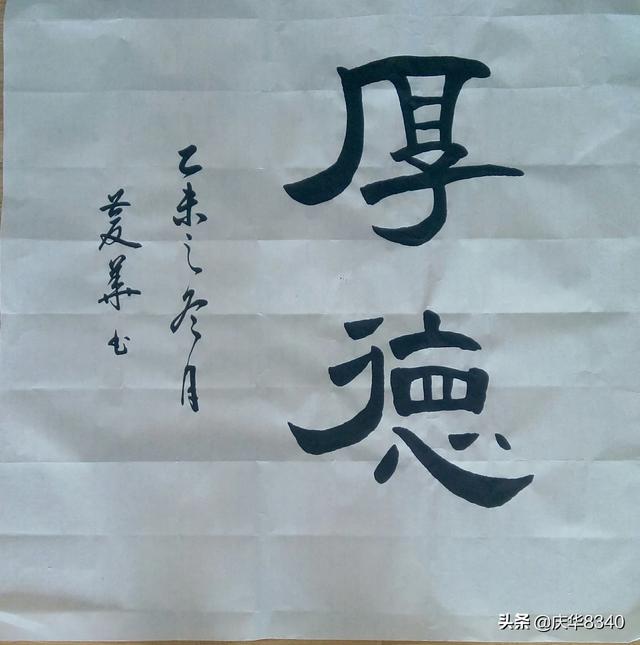 厚德
乙未之冬月
慶華书
头条 @庆华8340